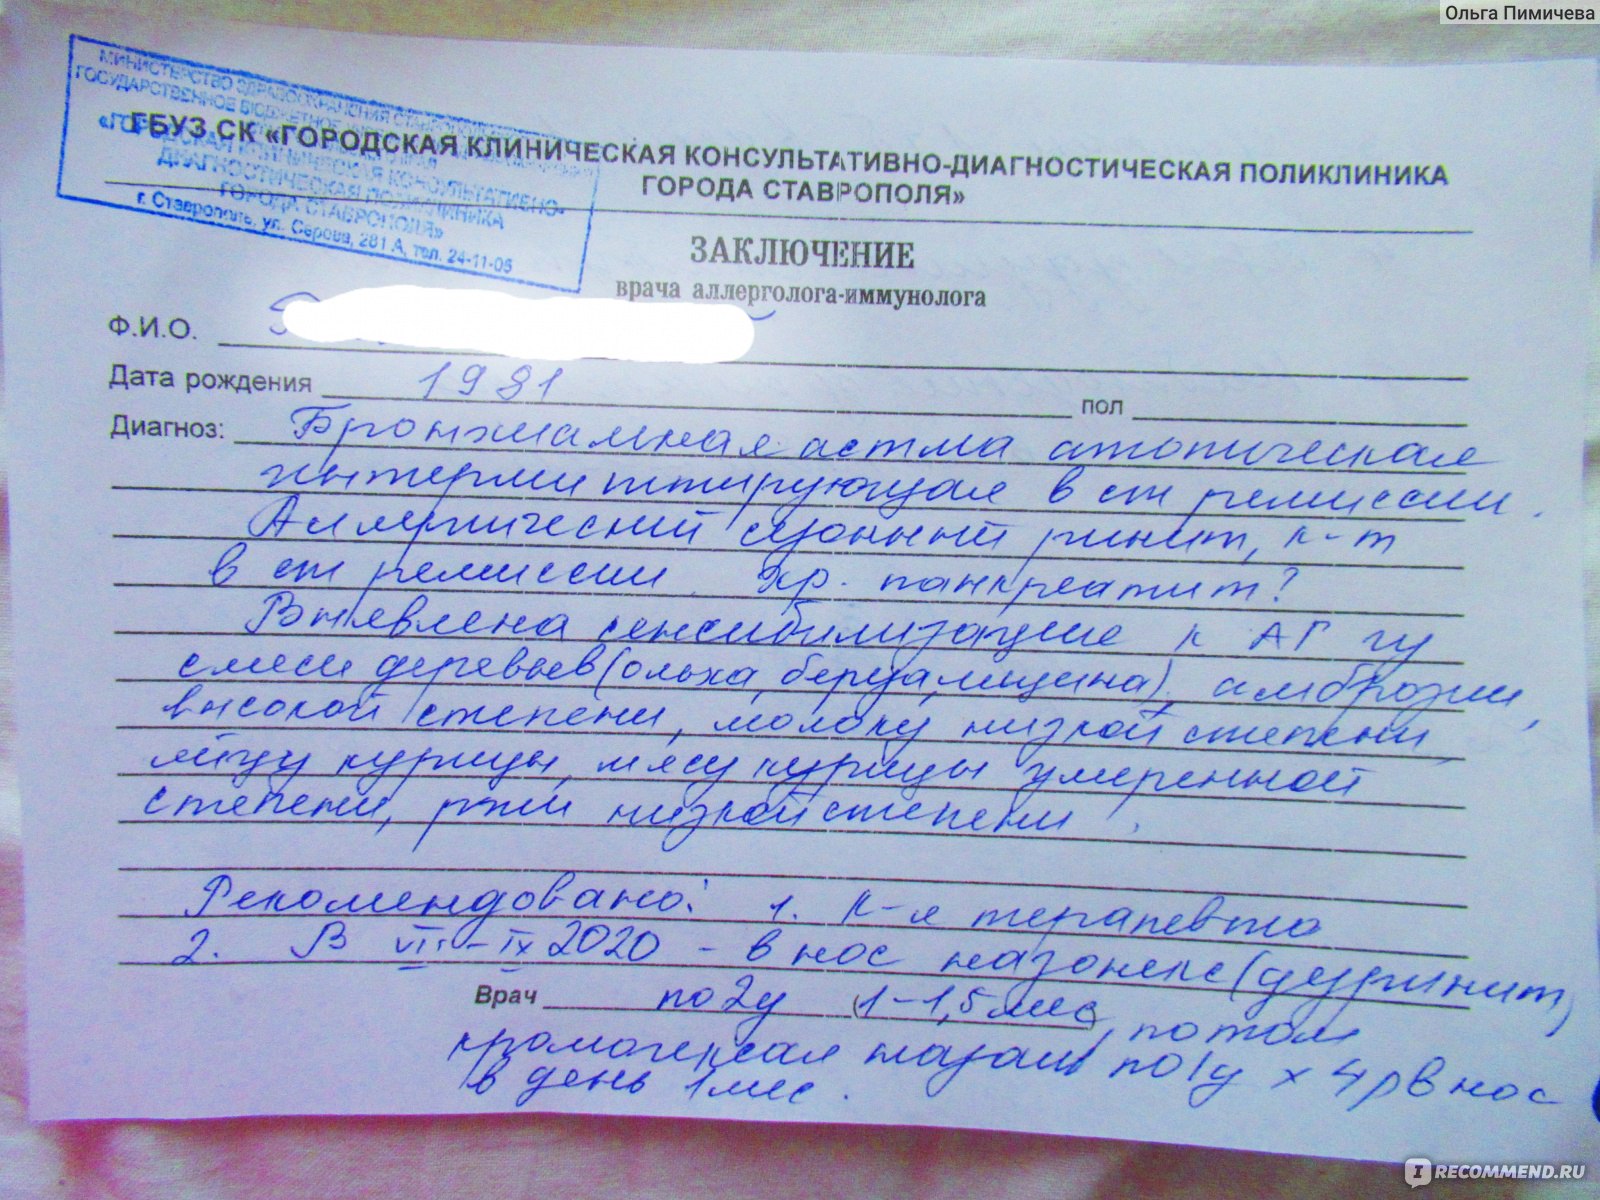 Ольга Пимичева
МИНИСТЕРСТВО ЗДРАВООХРАНЕНИЯ СТАВРОПОЛЬСКОГО
ГОСУДАРСТВЕННОЕ БЮДЖЕТНОЕ
ДИАГНОСТИЧЕСКАЯ ПОЛИКЛИНИКА
ГОРОДА СТАВРОПОЛЯ»
г. Ставрополь, ул. Серова, 281 А, тел. 24-11-05
ГБУЗ СК «ГОРОДСКАЯ КЛИНИЧЕСКАЯ КОНСУЛЬТАТИВНО-ДИАГНОСТИЧЕСКАЯ ПОЛИКЛИНИКА
ГОРОДА СТАВРОПОЛЯ»
ЗАКЛЮЧЕНИЕ
врача аллерголога-иммунолога
Ф.И.О.
Дата рождения 1981 пол
Диагноз: Бронхиальная астма атопическая
интермиттирующая в ст ремиссии.
Аллергический сезонный ринит, к-т
в ст ремиссии. Хр. панкреатит?
Выявлена сенсибилизация к АГ
смеси деревьев (ольха, береза, лещина), амброзии,
высокой степени, молоку низкой степени,
яйцу курицы, мясу курицы умеренной
степени, ржи низкой степени.
Рекомендовано: 1. К-я терапевта
2. В - IX 2020 - в нос назонекс (дезринит)
Врач по 2д (1-1,5 мес, потом
кромогексал назал по 1д х 4 р в нос
в день 1 мес.
IRECOMMEND.RU